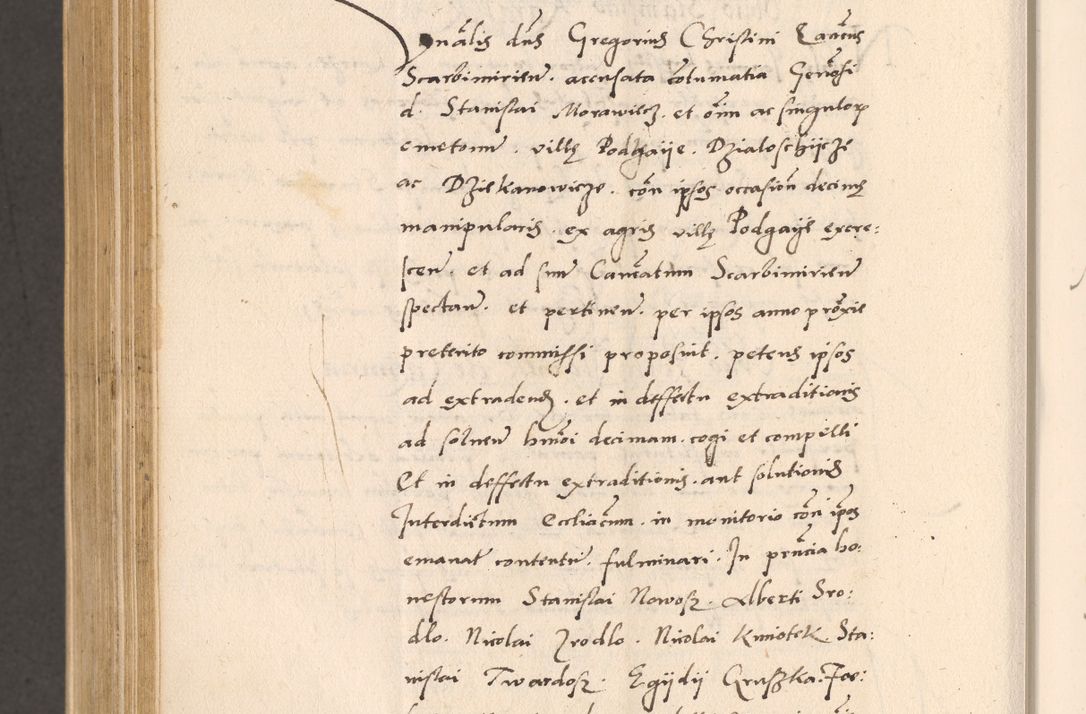 dn͞s Gregorius Christini
Scarbimirien̄. accusata cōtumatia Gen͞osi
d. Stanislai Morawicz. et o͞im ac singulor
cmetonu . villę Podgaiie. Dzialoschijcze
ac Dziekanowicze. cōn ipsos occasion̄ decimę
manipularis . ex agris villę Podgaije excre:
scen̄. et ad suu Canc͞atum Scarbimirien̄
spectan̄. et pertinen̄. per ipsos anno pro͞xie
preterito commissi proposuit. petens ipsos
ad extradend . et in deffectu extraditionis
ad soluen̄ hm͞oi decimam. cogi et compelli
Et in deffectu extraditionis. aut solutionis
Interdictum eccliac͞um. in monitorio cōn ip͞os
emanat contentu. fulminari. In pn͞tia ho:
nestorum Stanislai Nowosz. Alberti Sro:
dlo. Nicolai Zrodlo. Nicolai Kmiotek. Sta:
nislai Twardosz. Egijdij Gruszka. Foe: